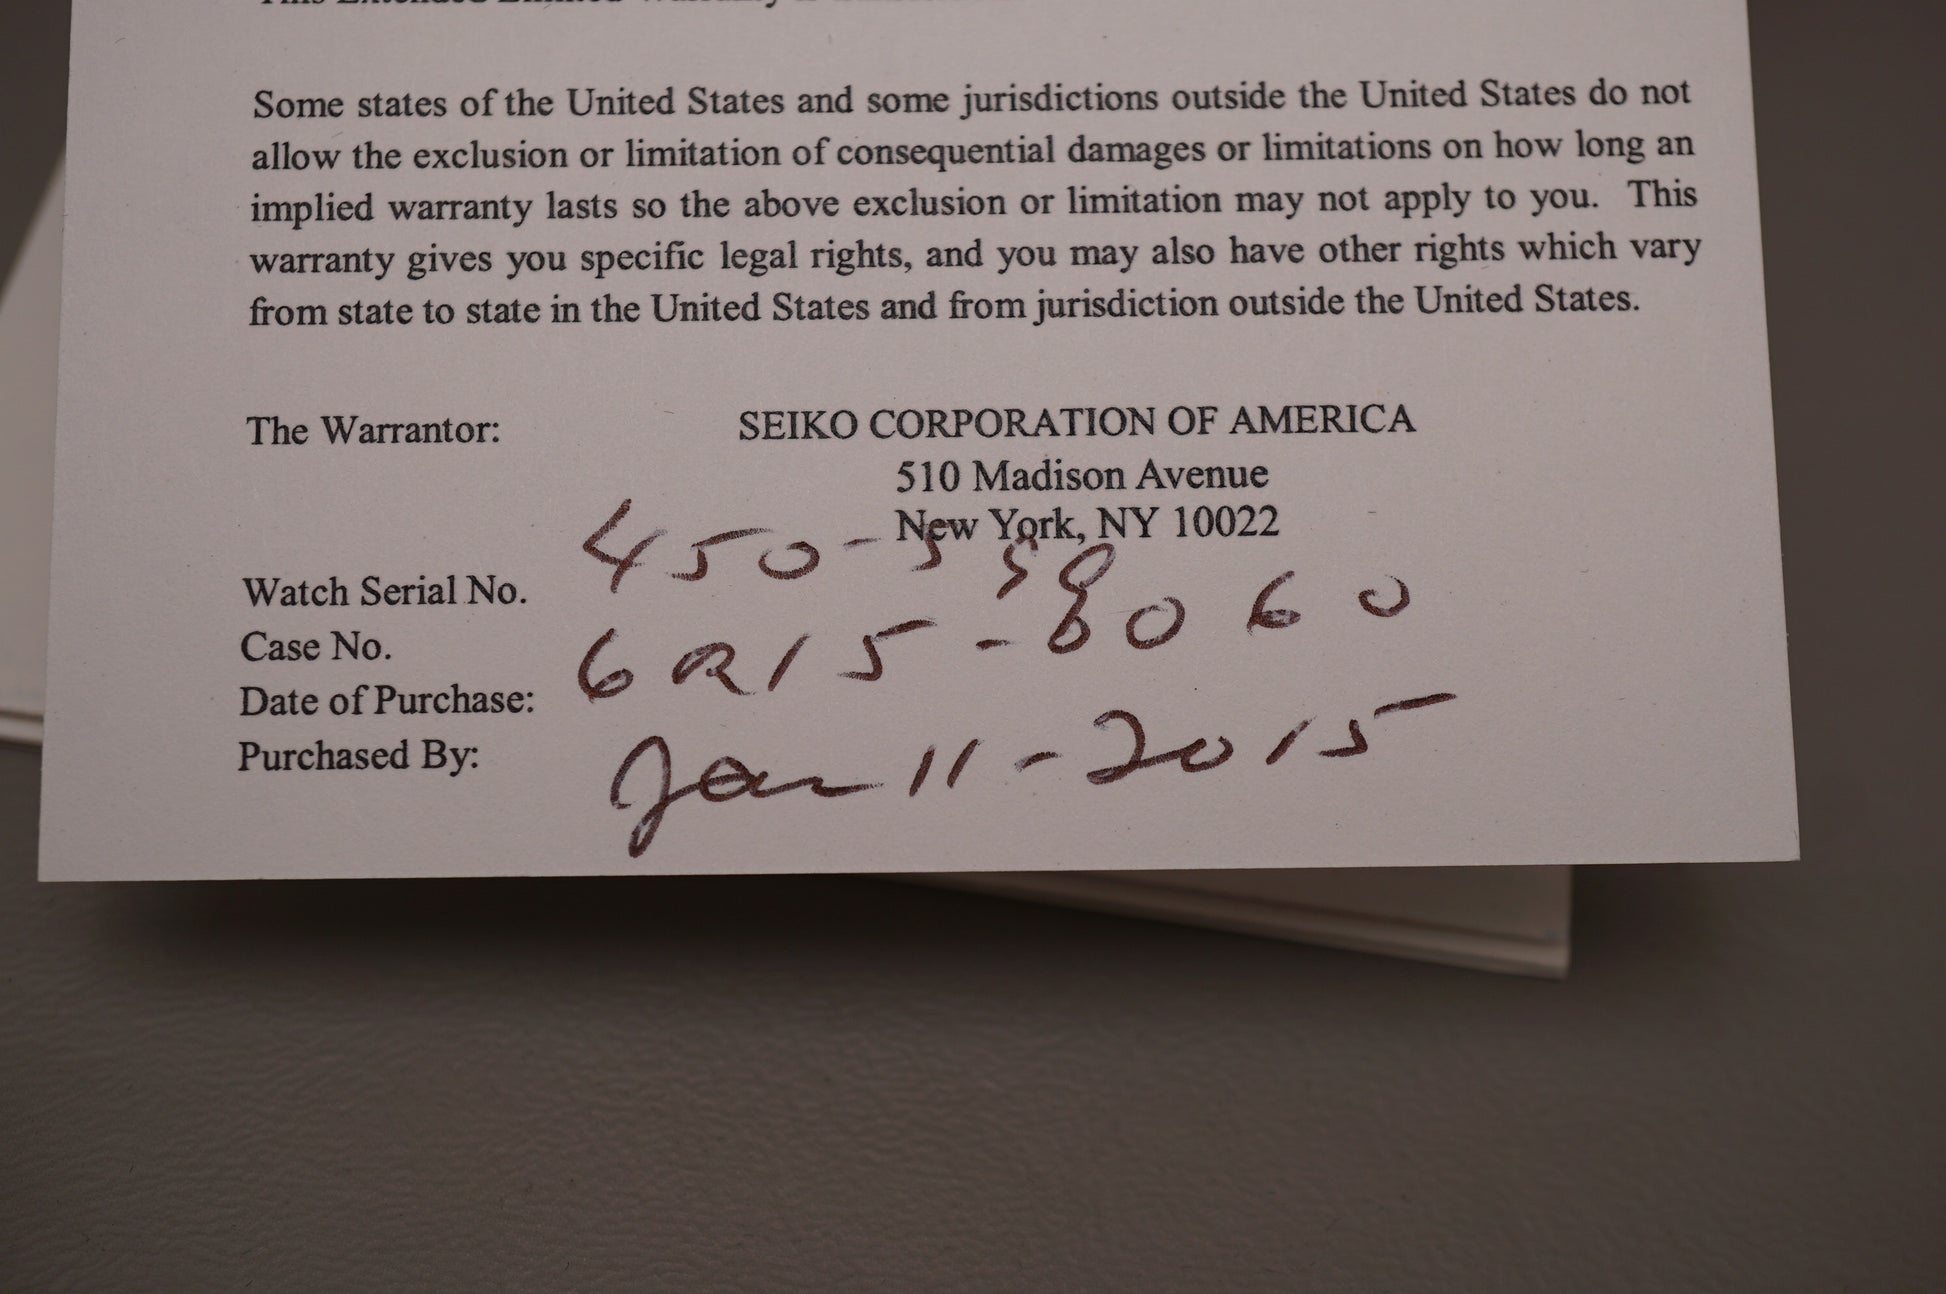 This Extended Limited Warranty is
Some states of the United States and some jurisdictions outside the United States do not
allow the exclusion or limitation of consequential damages or limitations on how long an
implied warranty lasts so the above exclusion or limitation may not apply to you. This
warranty gives you specific legal rights, and you may also have other rights which vary
from state to state in the United States and from jurisdiction outside the United States.
The Warrantor: SEIKO CORPORATION OF AMERICA
510 Madison Avenue
New York, NY 10022
Watch Serial No.
Case No. 6R15-0060
Date of Purchase:
Purchased By: Jan 11-2015